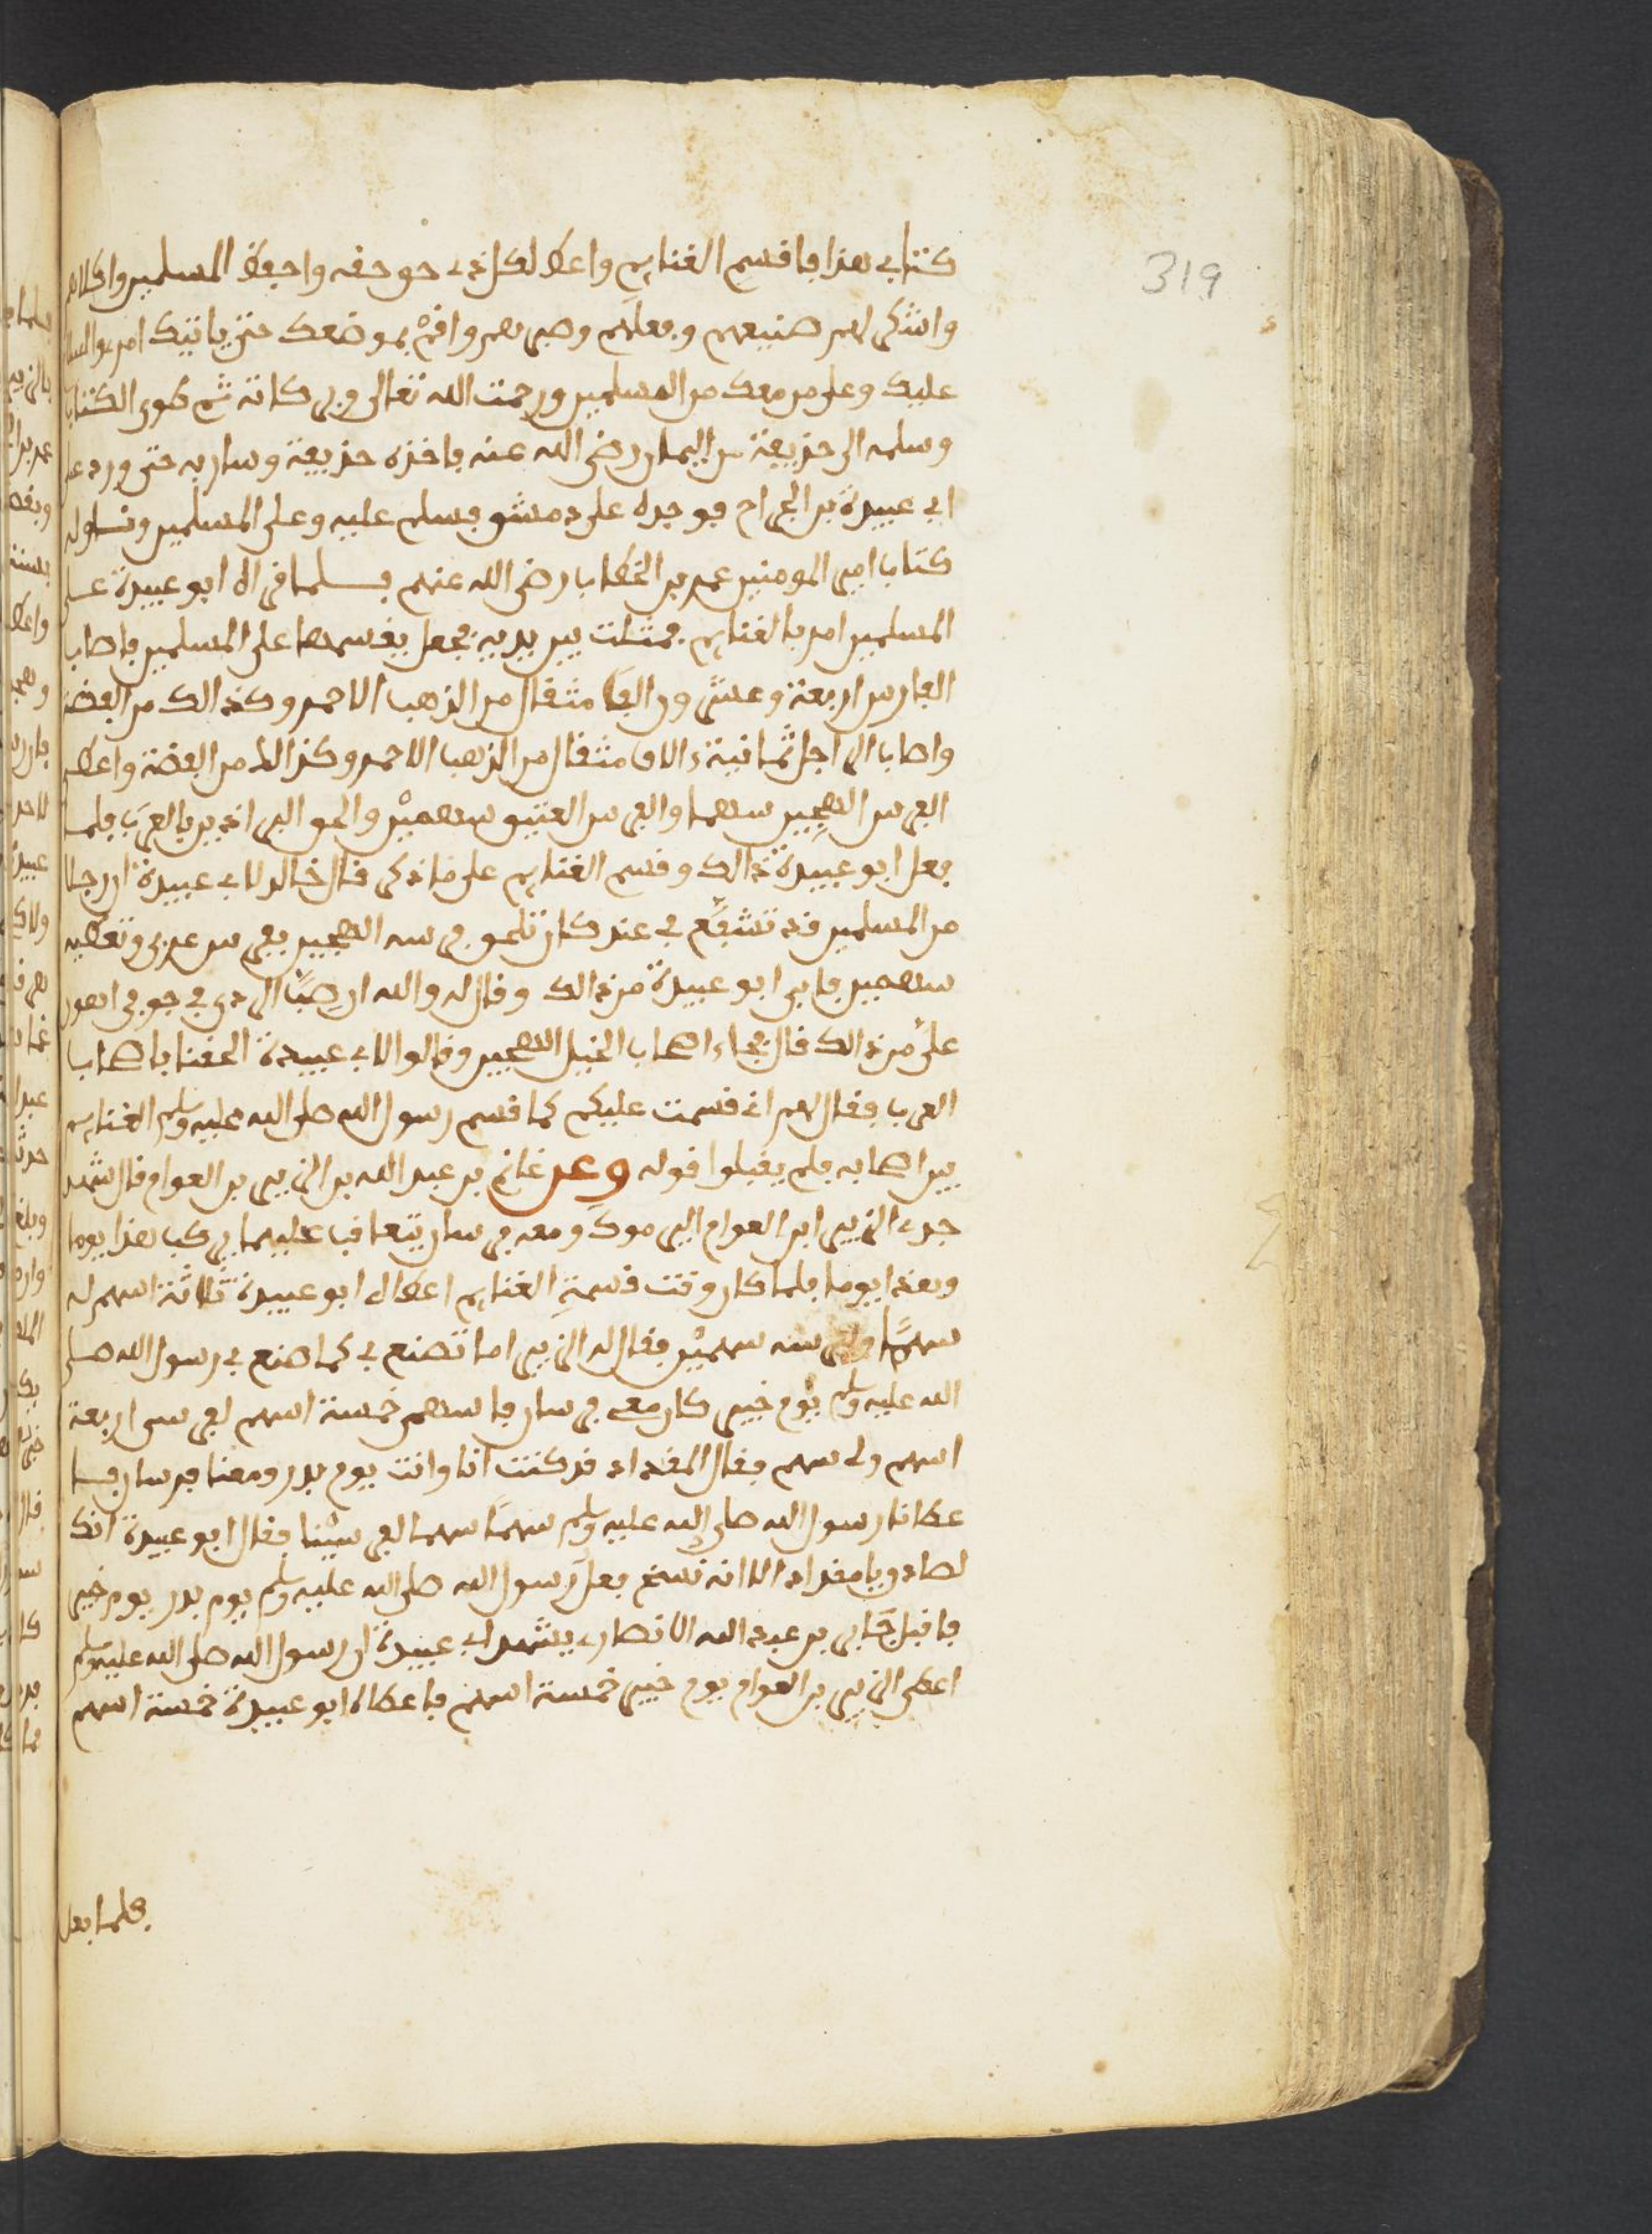 319
كتابي هذا فاقسم الغنايم واعط لكل ذي حق حقه واحفظ المسلمين واكلاهم
واشكر لهم صنيعهم وفعلهم وصبرهم واقم بموضعك حتى ياتيك امري والسلام
عليك وعلى من معك من المسلمين ورحمت الله تعالى وبركاته ثم طوى الكتاب
وسلمه الى حذيفة بن اليمان رضي الله عنه فاخذه حذيفة وسار به حتى ورد على
ابي عبيدة بن الجراح فوجده على دمشق فسلم عليه وعلى المسلمين وناوله
كتاب امير المومنين عمر بن الخطاب رضي الله عنهم فلما قراه ابو عبيدة على
المسلمين امر بالغنايم فمثلت بين يديه فجعل يقسمها على المسلمين فاصاب
الفارس اربعة وعشرون الفا مثقال من الذهب الاحمر وكذالك من الفضة
واصاب الراجل ثمانية ءالاف مثقال من الذهب الاحمر وكذالك من الفضة واعطى
الفرس الهجين سهما والفرس العتيق سهمين والحق البراذين بالعرب فلما
فعل ابو عبيدة ذالك وقسم الغنايم على ما ذكر قال خالد لابي عبيدة ان رجلا
من المسلمين قد تشفع بي عندك ان تلحق فرسه الهجين بفرس عربي وتعطيه
سهمين فابى ابو عبيدة من ذالك وقال له والله ان صب الردى في جوفي اهون
علي من ذالك قال فجاء اصحاب الخيل الهجين وقالوا لابي عبيدة الحقنا باصحاب
العرب فقال لهم اني قسمت عليكم كما قسم رسول الله صلى الله عليه وسلم الغنايم
بين اصحابه فلم يقبلوا قوله وعن غانم بن عبد الله بن الزبير بن العوام قال شهد
جدي الزبير ابن العوام اليرموك ومعه فرسان يتعاقب عليهما يركب هذا يوما
وهذا يوما فلما كان وقت قسمة الغنايم اعطاه ابو عبيدة ثلاثة اسهم له
سهما ولفرسه سهمين فقال له الزبير اما تصنع بي كما صنع بي رسول الله صلى
الله عليه وسلم يوم خيبر كان معي فرسان فاسهم خمسة اسهم لفرسي اربعة
اسهم ولي سهم فقال المقداد قد كنت انا وانت يوم بدر ومعنا فرسان فما
عطانا رسول الله صلى الله عليه وسلم سهما سهما لفرسينا فقال ابو عبيدة انك
لصادق يا مقداد الا انه نسخ فعل رسول الله صلى الله عليه وسلم يوم بدر يوم خيبر
فاقبل جابر بن عبد الله الانصاري يشهد لابي عبيدة ان رسول الله صلى الله عليه وسلم
اعطى الزبير بن العوام يوم خيبر خمسة اسهم فاعطاه ابو عبيدة خمسة اسهم
فلما فعل